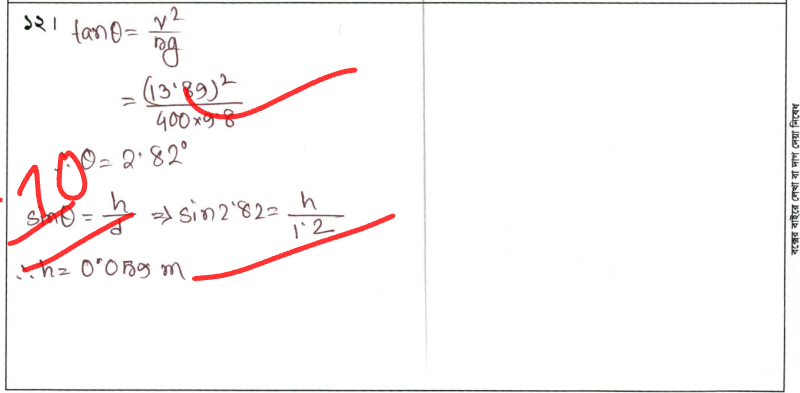 ১২। tanθ = v²/rg
= (13.89)²/400×9.8
∴ θ = 2.82°
10
sinθ = h/d ⇒ sin2.82 = h/1.2
∴ h = 0.059 m
বক্সের বাইরে লেখা বা দাগ দেয়া নিষেধ